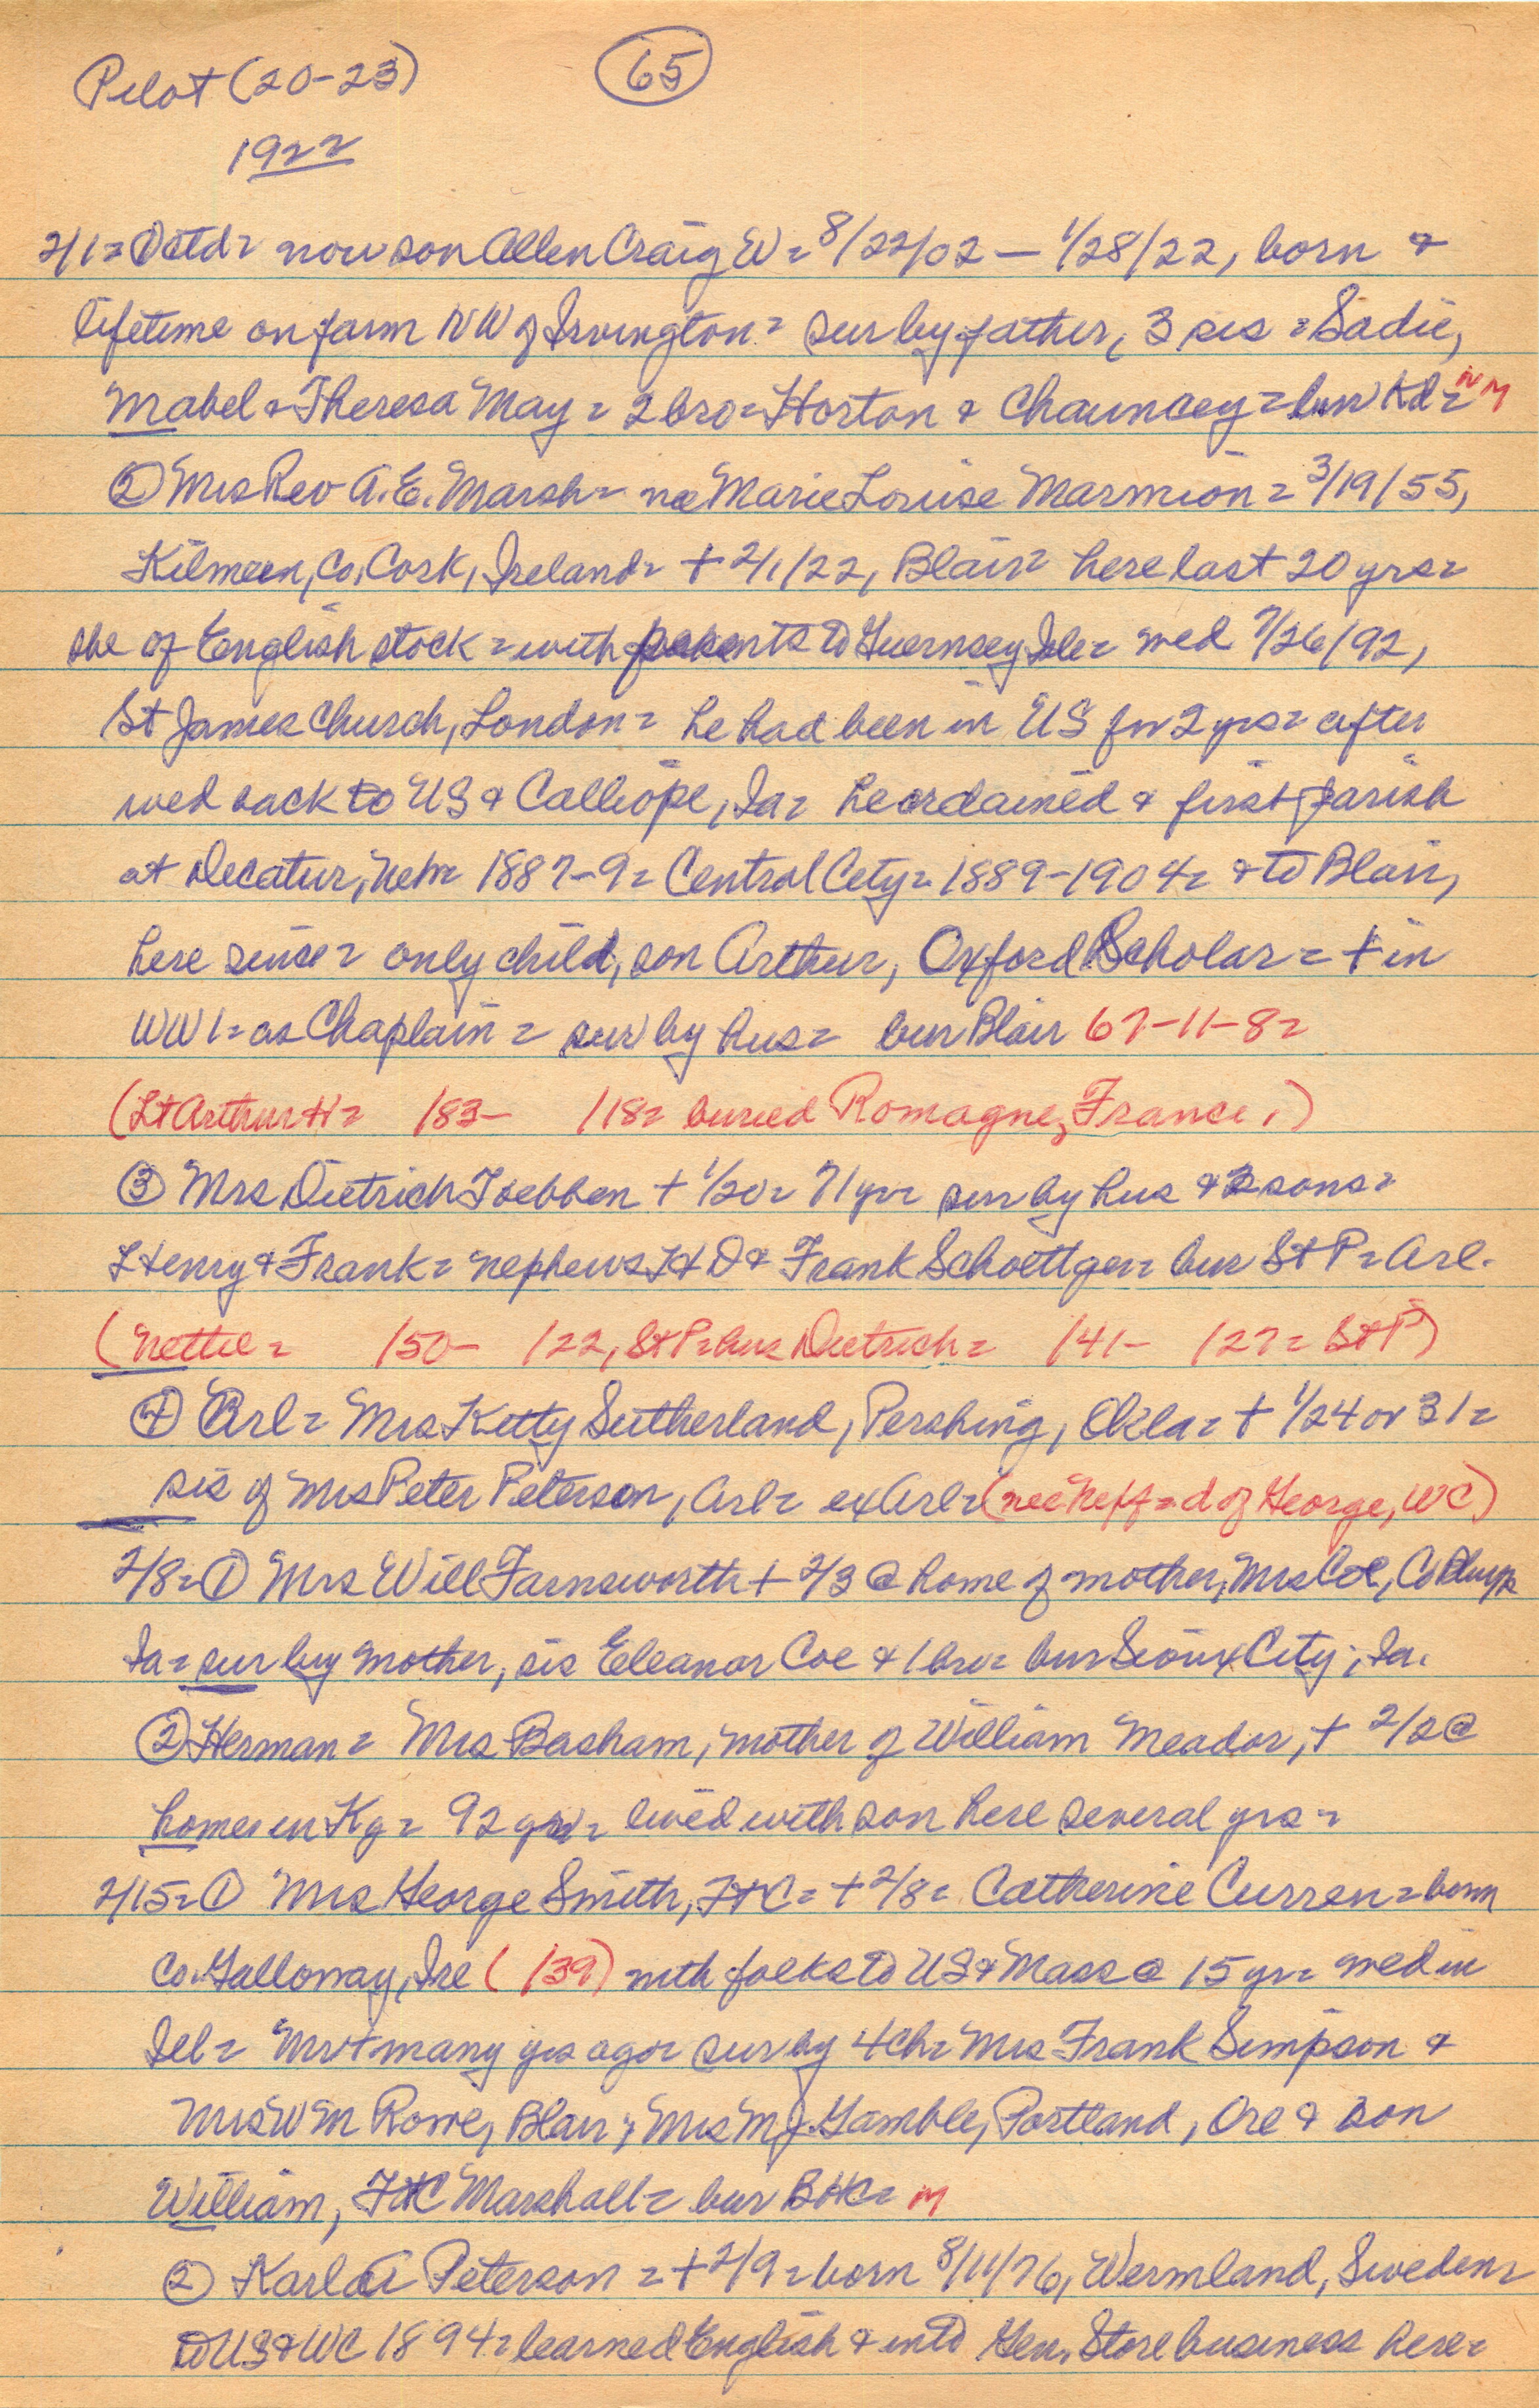 Pilot (20-23)
65
1922
2/1= Octd= now son Allen Craig W= 8/22/02 - 1/28/22, born &
lifetime on farm NW of Irvington= sur by father, 3 sis = Sadie,
Mabel & Theresa May = 2 bro= Horton & Chauncey = bur Kd= NM
② Mrs Rev A.E. Marsh= nee Marie Louise Marmion = 3/19/55,
Kilmeen, Co. Cork, Ireland= + 2/1/22, Blair= here last 20 yrs=
she of English stock = with parents to Guernsey Isle= wed 7/26/92,
St James Church, London= he had been in US for 2 yrs= after
wed back to US & Calliope, Ia= he ordained & first parish
at Decatur, Neb= 1887-9= Central City= 1889-1904= & to Blair,
here since= only child, son Arthur, Oxford Scholar = + in
WW1= as Chaplain = sur by hus= bur Blair 67-11-8=
(Lt Arthur H= /83- /18= buried Romagne, France.)
③ Mrs Dietrich Toebben + 1/20= 71 yr= sur by hus & 2 sons=
Henry & Frank= nephews H D & Frank Schoettger= bur St P= Arl.
(Nettie= /50- /22, St P= hus Dietrich= /41- /27= St P)
④ Arl= Mrs Kitty Sutherland, Pershing, Okla= + 1/24 or 31=
sis of Mrs Peter Peterson, Arl= ex Arl= (nee Neff= d of George, WC)
2/8= ① Mrs Will Farnsworth + 2/3 @ home of mother, Mrs Coe, Co Blufs
Ia= sur by mother, sis Eleanor Coe & 1 bro= bur Sioux City, Ia.
② Herman= Mrs Basham, mother of William Meador, + 2/2 @
home in Ky= 92 yrs= lived with son here several yrs=
2/15= ① Mrs George Smith, FtC= + 2/8= Catherine Curren= born
Co. Galloway, Ire ( /39) with folks to US & Mass @ 15 yr= wed in
Ill= Mr + many yrs ago= sur by 4 ch= Mrs Frank Simpson &
Mrs Wm Rowe, Blair; Mrs M J. Gamble, Portland, Ore & son
William, FtC Marshall= bur BHC= M
② Karl A Peterson = + 2/9= born 8/11/76, Wermland, Sweden=
to US & WC 1894= learned English & into Gen. Store business here=